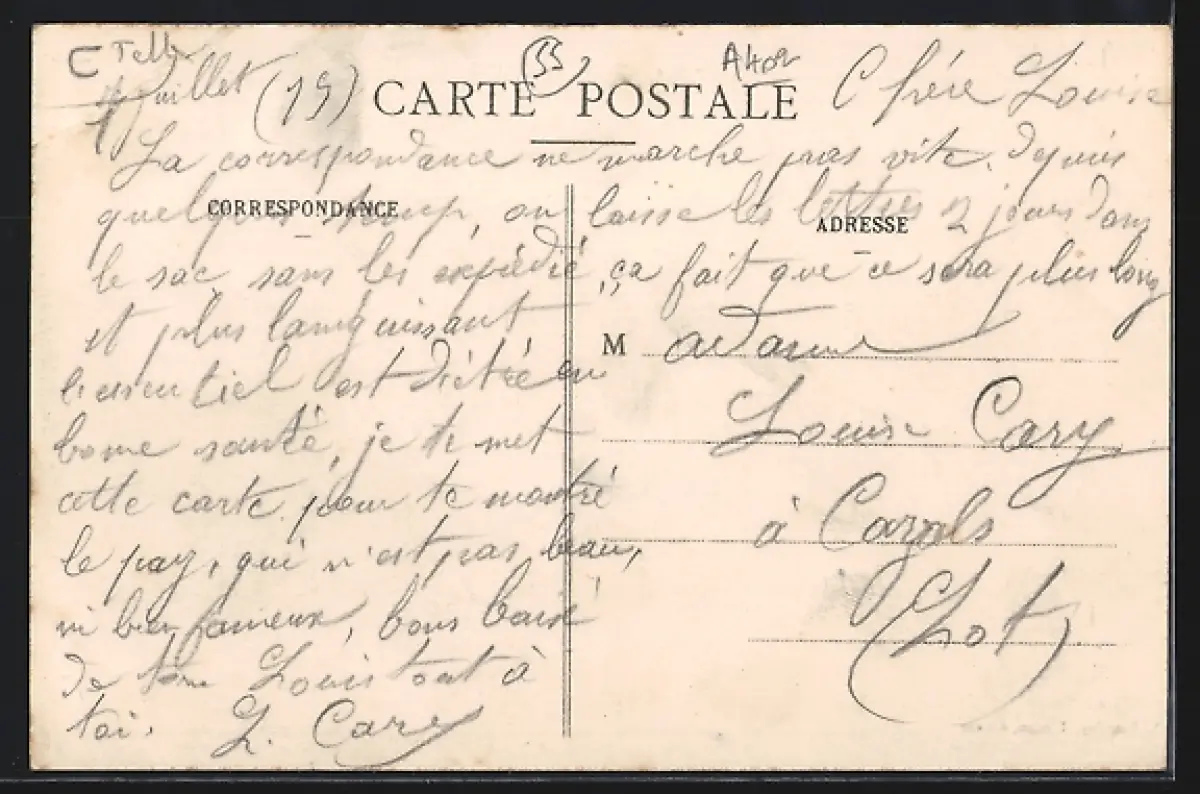 C
55
A402
Juillet (15)
CARTE POSTALE
Chére Louise
La correspondance ne marche pas vite. depuis
quelques temp, on laisse les lettres 12 jours dans
CORRESPONDANCE
ADRESSE
le sac sans les expédié, ça fait que ce sera plus long
et plus languissant
l'essentiel est d'être en
bonne santé, je te met
cette carte pour te montré
le pay, qui n'est pas beau,
ni bien fameux, bons baisé
de ton Louis tout à
toi. L. Cary
M adame
Louise Cary
à Cazals
(Lot)